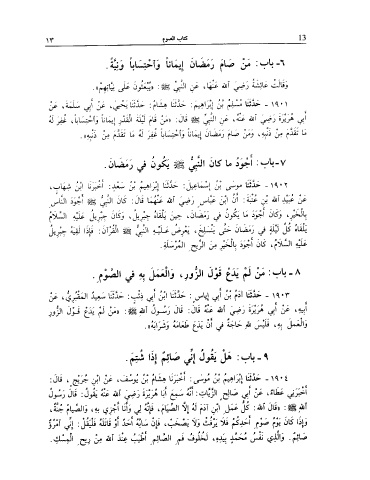 13 كتاب الصوم ١٣
٦- باب: مَنْ صَامَ رَمَضَانَ إِيمَاناً وَاحْتِسَاباً وَنِيَّةً.
وَقَالَتْ عَائِشَةُ رَضِيَ اللهُ عَنْهَا، عَنِ النَّبِيِّ ﷺ: «يُبْعَثُونَ عَلَى نِيَّاتِهِمْ».
١٩٠١ - حَدَّثَنَا مُسْلِمُ بْنُ إِبْرَاهِيمَ: حَدَّثَنَا هِشَامٌ: حَدَّثَنَا يَحْيَى، عَنْ أَبِي سَلَمَةَ، عَنْ
أَبِي هُرَيْرَةَ رَضِيَ اللهُ عَنْهُ، عَنِ النَّبِيِّ ﷺ قَالَ: «مَنْ قَامَ لَيْلَةَ الْقَدْرِ إِيمَاناً وَاحْتِسَاباً، غُفِرَ لَهُ
مَا تَقَدَّمَ مِنْ ذَنْبِهِ، وَمَنْ صَامَ رَمَضَانَ إِيمَاناً وَاحْتِسَاباً غُفِرَ لَهُ مَا تَقَدَّمَ مِنْ ذَنْبِهِ».
٧- باب: أَجْوَدُ ما كانَ النَّبِيُّ ﷺ يَكُونُ في رَمَضَانَ.
١٩٠٢ - حَدَّثَنَا مُوسَى بْنُ إِسْمَاعِيلَ: حَدَّثَنَا إِبْرَاهِيمُ بْنُ سَعْدٍ: أَخْبَرَنَا ابْنُ شِهَابٍ،
عَنْ عُبَيْدِ اللهِ بْنِ عُتْبَةَ: أَنَّ ابْنَ عَبَّاسٍ رَضِيَ اللهُ عَنْهُمَا قَالَ: كَانَ النَّبِيُّ ﷺ أَجْوَدَ النَّاسِ
بِالْخَيْرِ، وَكَانَ أَجْوَدَ مَا يَكُونُ فِي رَمَضَانَ، حِينَ يَلْقَاهُ جِبْرِيلُ، وَكَانَ جِبْرِيلُ عَلَيْهِ السَّلَامُ
يَلْقَاهُ كُلَّ لَيْلَةٍ فِي رَمَضَانَ حَتَّى يَنْسَلِخَ، يَعْرِضُ عَلَيْهِ النَّبِيُّ ﷺ الْقُرْآنَ: فَإِذَا لَقِيَهُ جِبْرِيلُ
عَلَيْهِ السَّلَامُ، كَانَ أَجْوَدَ بِالْخَيْرِ مِنَ الرِّيحِ الْمُرْسَلَةِ.
٨ - باب: مَنْ لَمْ يَدَعْ قَوْلَ الزُّورِ، وَالْعَمَلَ بِهِ في الصَّوْمِ.
١٩٠٣ - حَدَّثَنَا آدَمُ بْنُ أَبِي إِيَاسٍ: حَدَّثَنَا ابْنُ أَبِي ذِئْبٍ: حَدَّثَنَا سَعِيدٌ الْمَقْبُرِيُّ، عَنْ
أَبِيهِ، عَنْ أَبِي هُرَيْرَةَ رَضِيَ اللهُ عَنْهُ قَالَ: قَالَ رَسُولُ اللهِ ﷺ: «مَنْ لَمْ يَدَعْ قَوْلَ الزُّورِ
وَالْعَمَلَ بِهِ، فَلَيْسَ للهِ حَاجَةٌ فِي أَنْ يَدَعَ طَعَامَهُ وَشَرَابَهُ».
٩ - باب: هَلْ يَقُولُ إِنِّي صَائِمٌ إِذَا شُتِمَ.
١٩٠٤ - حَدَّثَنَا إِبْرَاهِيمُ بْنُ مُوسَى: أَخْبَرَنَا هِشَامُ بْنُ يُوسُفَ، عَنِ ابْنِ جُرَيْجٍ، قَالَ:
أَخْبَرَنِي عَطَاءٌ، عَنْ أَبِي صَالِحٍ الزَّيَّاتِ: أَنَّهُ سَمِعَ أَبَا هُرَيْرَةَ رَضِيَ اللهُ عَنْهُ يَقُولُ: قَالَ رَسُولُ
اللهِ ﷺ: «قَالَ اللهُ: كُلُّ عَمَلِ ابْنِ آدَمَ لَهُ إِلَّا الصِّيَامَ، فَإِنَّهُ لِي وَأَنَا أَجْزِي بِهِ، وَالصِّيَامُ جُنَّةٌ،
وَإِذَا كَانَ يَوْمُ صَوْمِ أَحَدِكُمْ فَلَا يَرْفُثْ وَلَا يَصْخَبْ، فَإِنْ سَابَّهُ أَحَدٌ أَوْ قَاتَلَهُ فَلْيَقُلْ: إِنِّي امْرُؤٌ
صَائِمٌ. وَالَّذِي نَفْسُ مُحَمَّدٍ بِيَدِهِ، لَخُلُوفُ فَمِ الصَّائِمِ أَطْيَبُ عِنْدَ اللهِ مِنْ رِيحِ الْمِسْكِ.